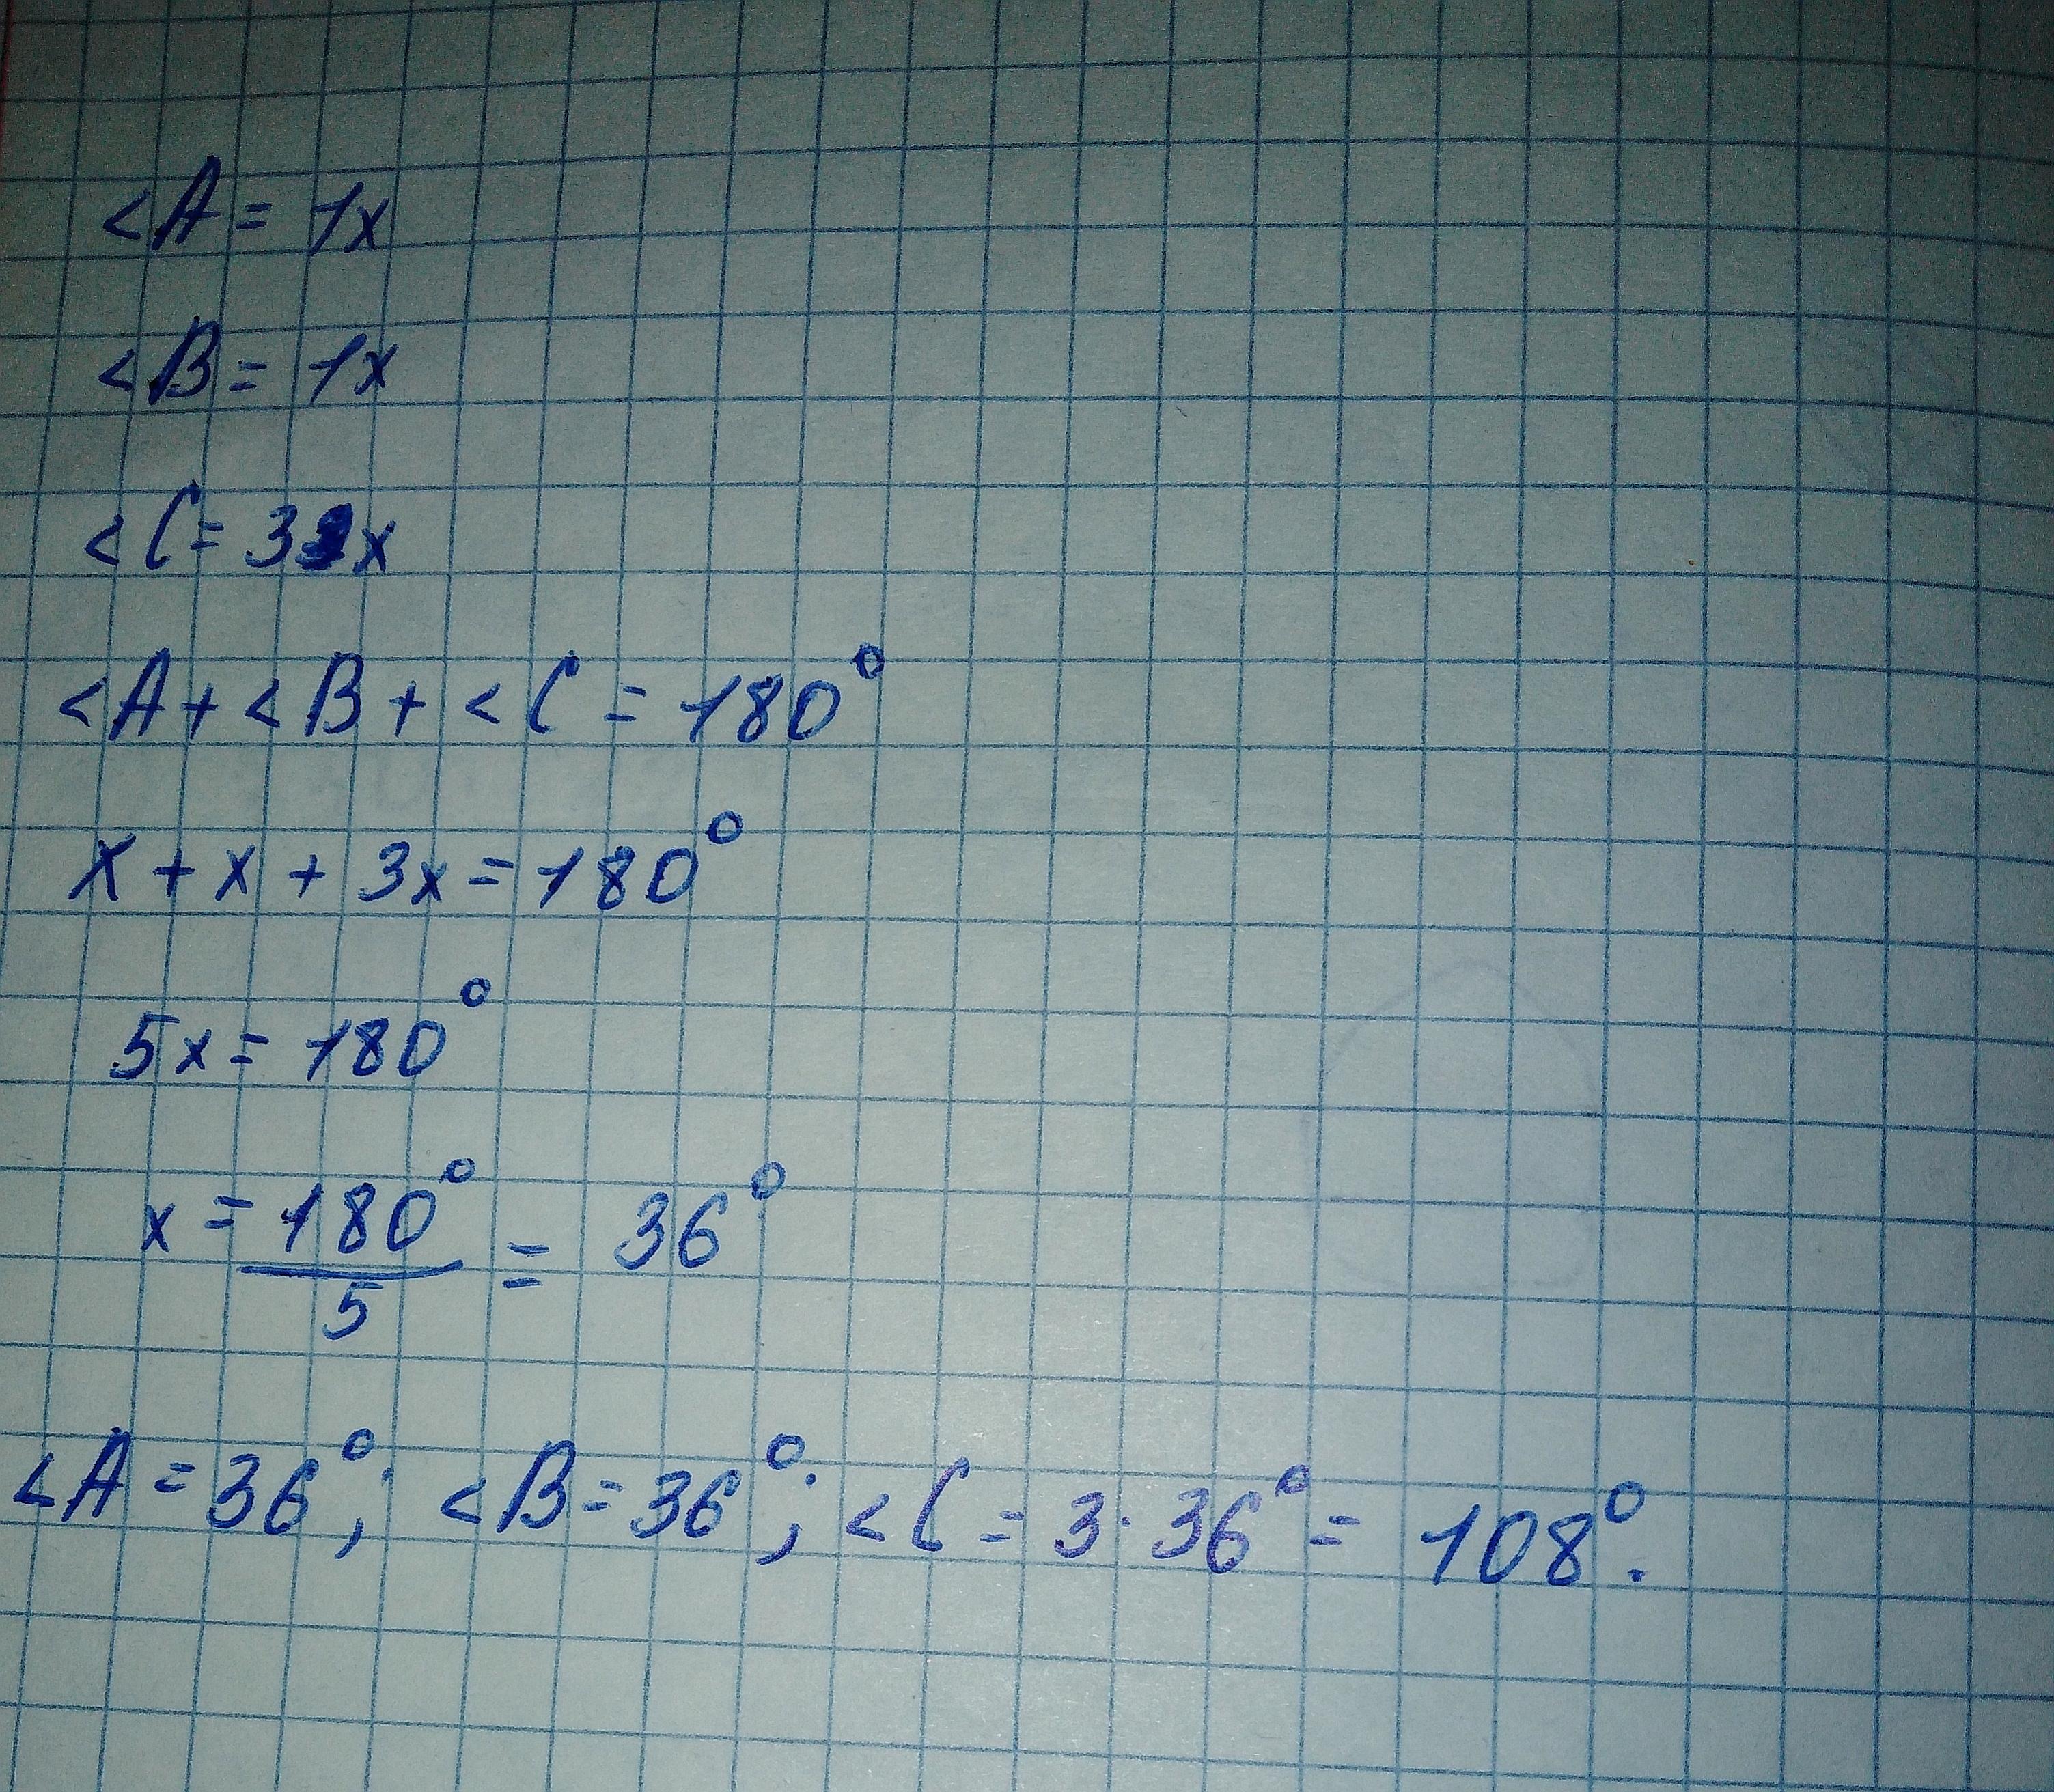 <A = 1x
<B = 1x
<C = 3x
<A + <B + <C = 180°
x + x + 3x = 180°
5x = 180°
x = 180° / 5 = 36°
<A = 36°; <B = 36°; <C = 3·36° = 108°.